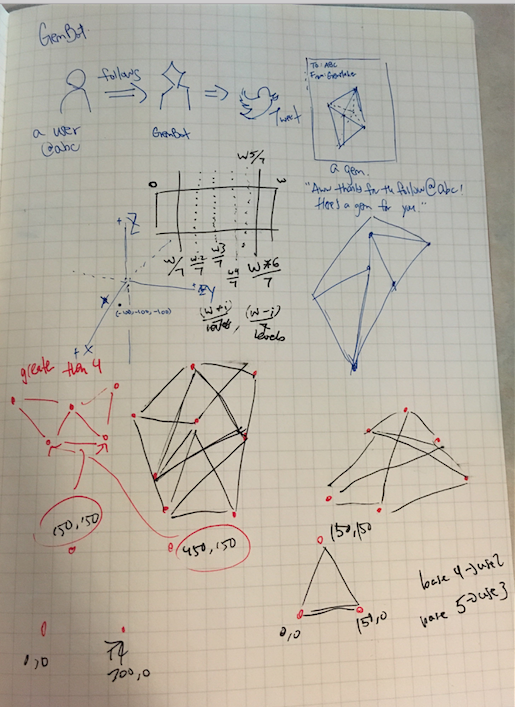 GemBot
follows
a user
@abc
GemBot
Tweet
To: ABC
a gem.
"Aww thanks for the follow @abc!
Here's a gem for you."
W5/7
0
W
W/7
W2/7
W3/7
W4/7
W*6/7
+Z
+Y
+X
(-100,-100,-100)
(W+i)/levels, (W-i)/levels
greater than 4
150,150
450,150
0,0
700,0
150,150
0,0
150,0
base 4→use2
base 5→use3